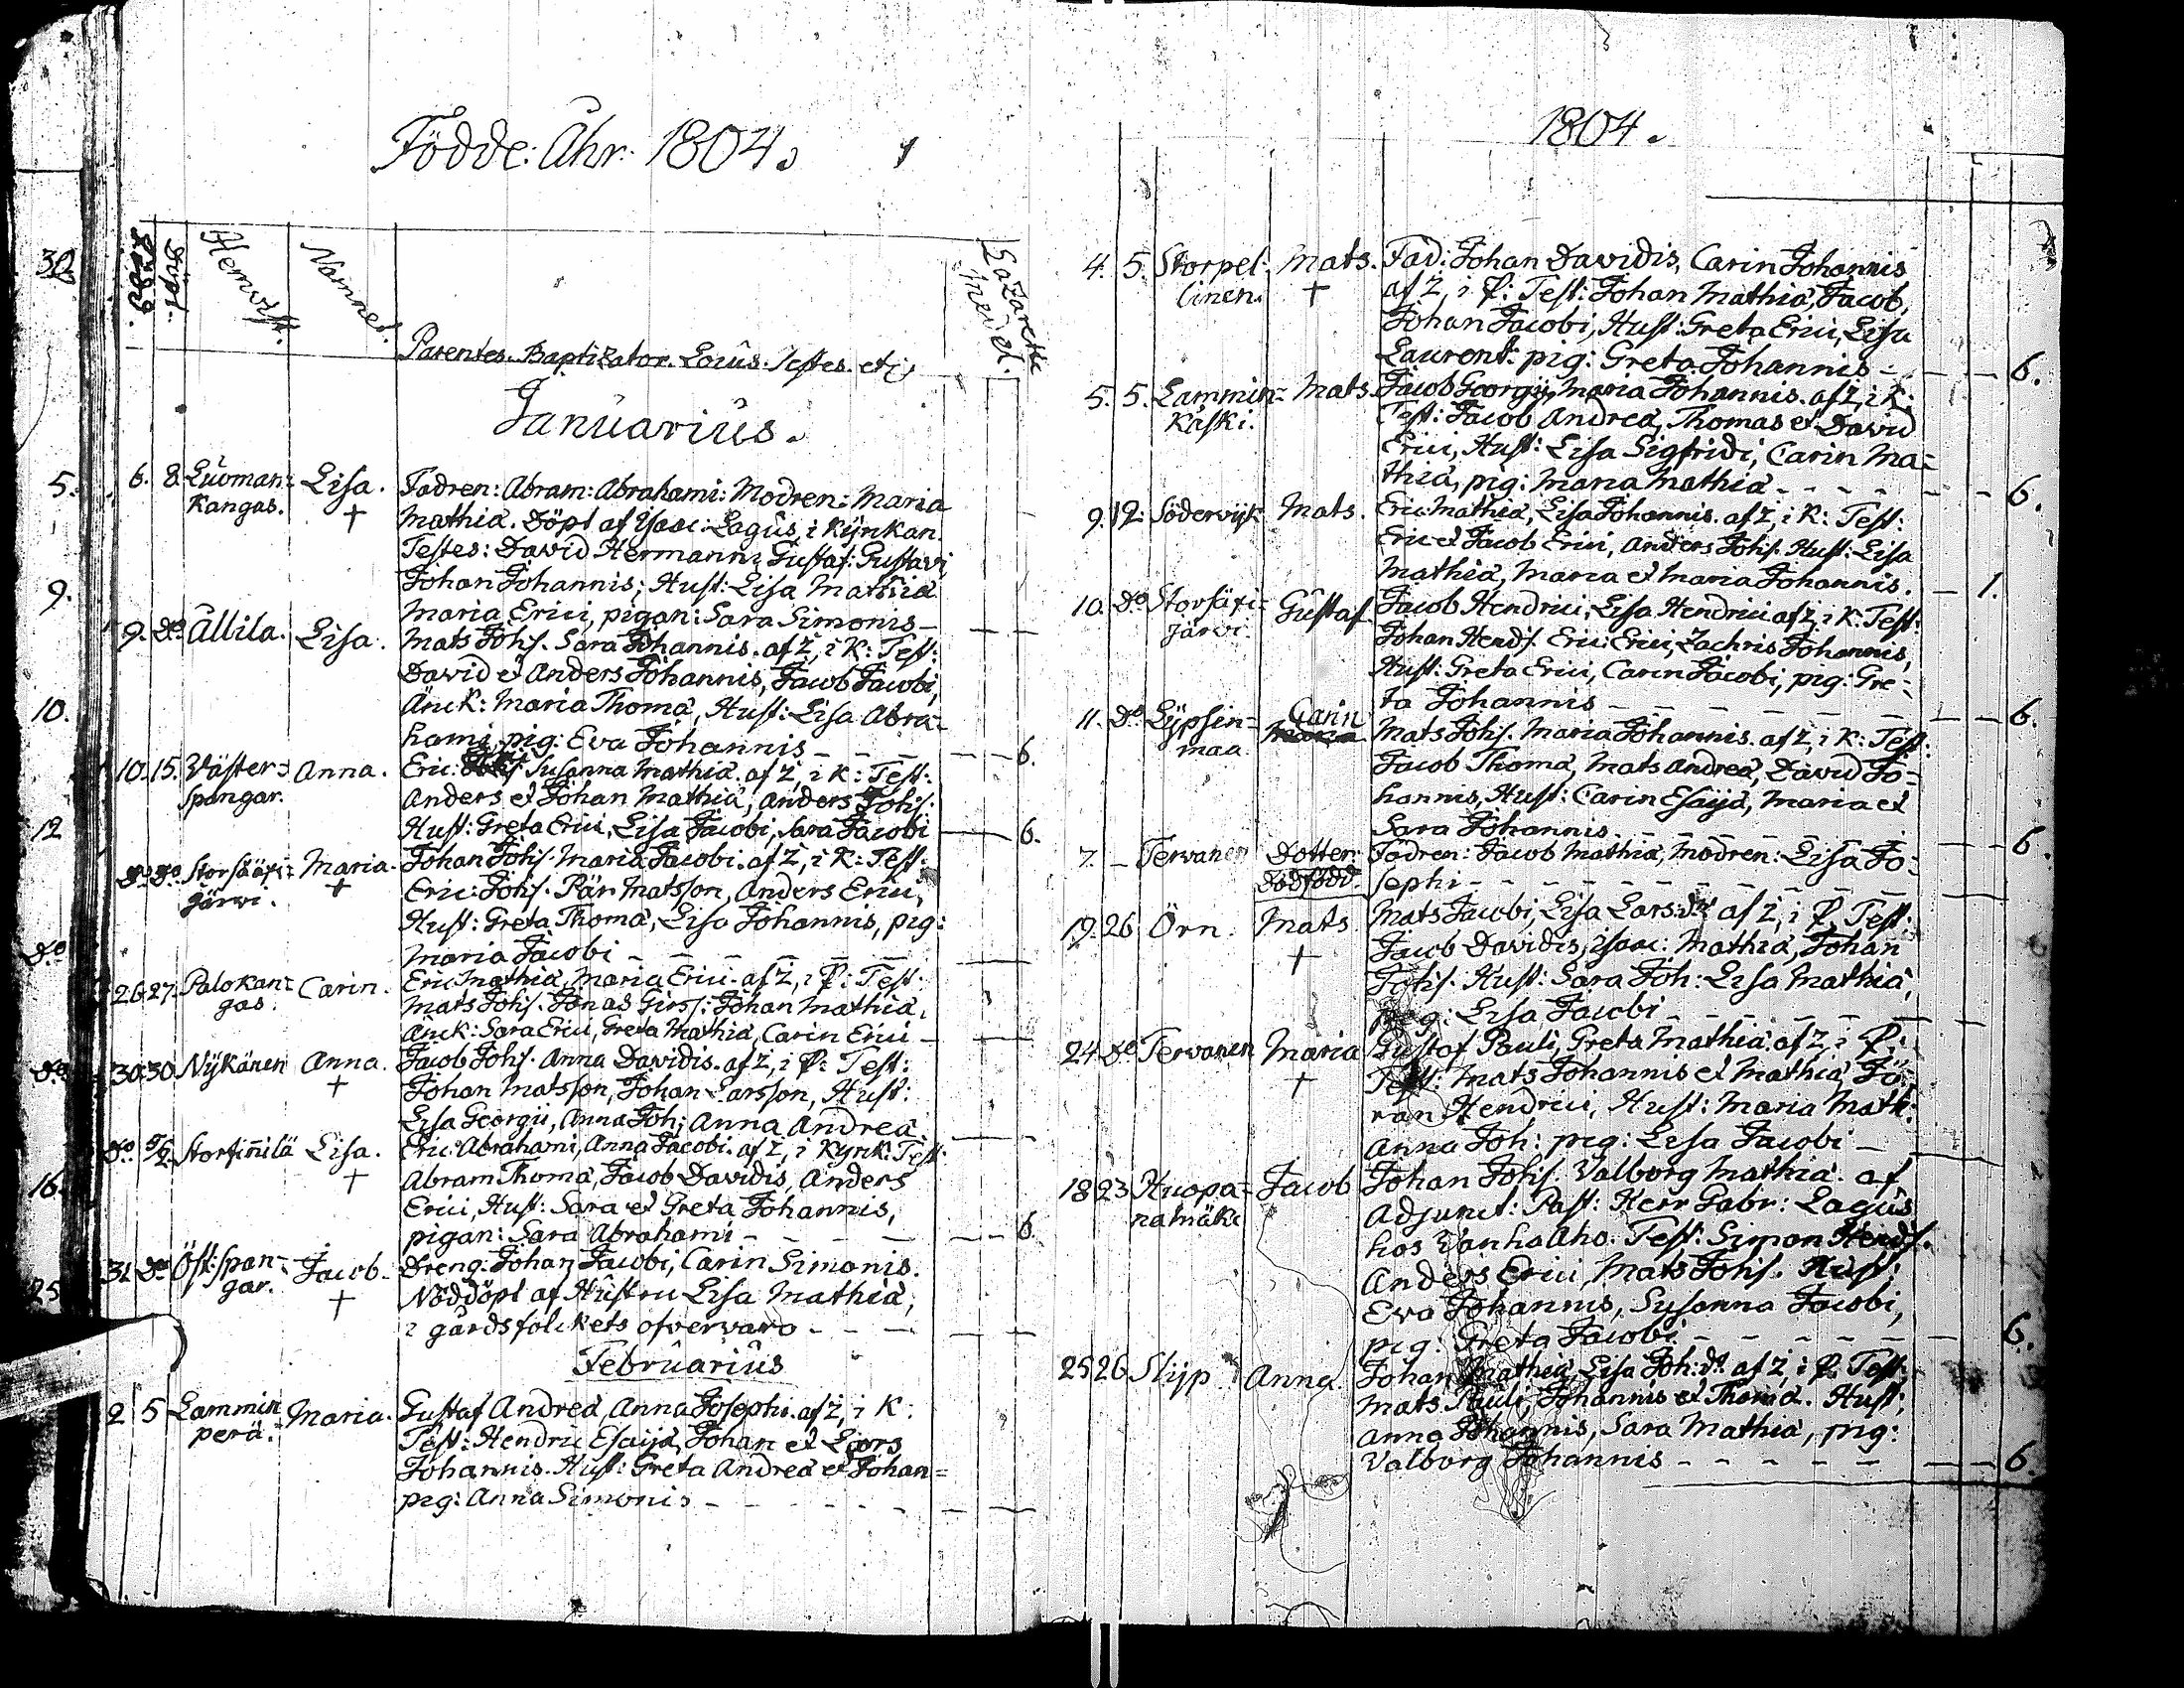 Födde: Åhr: 1804.
Född.
Döpt.
Hemvist.
Namnet.
Parentes. Baptizator. Locus. Testes. etc
Lazaretts
medel.
Januarius.
6. 8. Luoman= Lisa. Fadren: Abram: Abrahami: Modren: Maria
kangas. † Mathiæ. Döpt af Isaac: Lagus, i Kyrkan.
Testes: David Hermanni Gustaf: Gustavi
Johan Johannis; Hust: Lisa Mathiæ
Maria Erici, pigan: Sara Simonis —
9. Do Allila. Lisa. Mats Johs. Sara Johannis. af Z, i K: Test:
David et Anders Johannis, Jacob Jacobi,
Änck: Maria Thomæ, Hust: Lisa Abra=
hami pig: Eva Johannis — 6.
10. 15. Wäster= Anna. Eric: Susanna Mathiæ. af Z, i K: Test:
spångar. Anders et Johan Mathiæ, Anders Johs.
Hust: Greta Erici, Lisa Jacobi, Sara Jacobi — 6.
Do Do Storsääxi= Maria. Johan Johs. Maria Jacobi. af Z, i K: Test:
järvi. † Eric: Johs. Pär Matsson, Anders Erici,
Hust: Greta Thomæ, Lisa Johannis, pig:
Maria Jacobi —
26. 27. Palokan= Carin. Eric Mathiæ, Maria Erici. af Z, i P: Test:
gas. Mats Johs. Jonas Girss: Johan Mathiæ,
Änck: Sara Erici, Greta Mathiæ, Carin Erici —
30. 30. Nykänen Anna. Jacob Johs. Anna Davidis. af Z, i P: Test:
† Johan Matsson, Johan Larsson, Hust:
Lisa Georgii, Anna Joh; Anna Andreæ
Do Storfinnilä Lisa. Eric: Abrahami, Anna Jacobi. af Z, i Kyrk: Test:
† Abram Thomæ, Jacob Davidis, Anders
Erici, Hust: Sara et Greta Johannis,
pigan: Sara Abrahami — 6
31. Do Öst: span= Jacob. Dreng. Johan Jacobi, Carin Simonis.
gar. † Nöddöpt af Hustru Lisa Mathiæ,
i gårdsfolckets öfvervaro —
Februarius
2 5 Lammin Maria. Gustaf Andreæ, Anna Josephi. af Z, i K:
perä. Test: Hendric Esaijæ, Johan et Lars
Johannis. Hust: Greta Andreæ et Johan=
pig: Anna Simonis —
30.
5.
9.
10.
12
Do
Do
16.
25
1804.
4. 5. Storpel: Mats. Fad: Johan Davidis, Carin Johannis
linen. † af Z, i P: Test: Johan Mathiæ, Jacob,
Johan Jacobi, Hust: Greta Erici, Lisa
Laurent: pig: Greta Johannis — 6.
5. 5. Lammin= Mats. Jacob Georgii, Maria Johannis. af Z, i K:
kåski. Test: Jacob Andreæ, Thomas et David
Erici, Hust: Lisa Sigfridi, Carin Ma=
thiæ, pig: Maria Mathiæ — 6.
9. 12. Södervijk Mats. Eric: Mathiæ, Lisa Johannis. af Z, i K: Test:
Eric et Jacob Erici, Anders Johs. Hust: Lisa
Mathiæ, Maria et Maria Johannis. — 1.
10. Do Storsäxi= Gustaf. Jacob Hendrici, Lisa Hendrici af Z, i K: Test:
järvi. Johan Hends. Eric: Erici, Zachris Johannis,
Hust: Greta Erici, Carin Jacobi, pig: Gre=
ta Johannis — 6.
11. Do Lypsin= Carin Mats Johs. Maria Johannis. af Z, i K: Test:
maa. Maria Jacob Thomæ, Mats Andreæ, David Jo=
hannis, Hust: Carin Esaijæ, Maria et
Sara Johannis — 6.
7. — Tervanen Dotter: Fadren: Jacob Mathiæ, Modren: Lisa Jo=
dödfödd. sephi —
19. 26 Örn. Mats Mats Jacobi, Lisa Lars:dr af Z, i P. Test:
† Jacob Davidis, Isaac: Mathiæ, Johan
Johs. Hust: Sara Joh: Lisa Mathiæ,
pig: Lisa Jacobi —
24. Do Tervanen Maria Gustaf Pauli, Greta Mathiæ. af Z, i P:
† Test: Mats Johannis et Mathiæ, Jö=
ran Hendrici, Hust: Maria Math:
Anna Joh: pig: Lisa Jacobi —
18 23 Huopa= Jacob Johan Johs. Valborg Mathiæ. af
namäki Adjunct: Past: Herr Gabr: Lagus
hos Vanha Aho. Test: Simon Hends.
Anders Erici, Mats Johs. Hust:
Eva Johannis, Susanna Jacobi,
pig: Greta Jacobi — 6.
25 26 Slijp Anna. Johan Mathiæ, Lisa Joh:dr. af Z, i P. Test:
Mats Pauli, Johannis et Thomæ. Hust:
Anna Johannis, Sara Mathiæ, pig:
Valborg Johannis — 6.